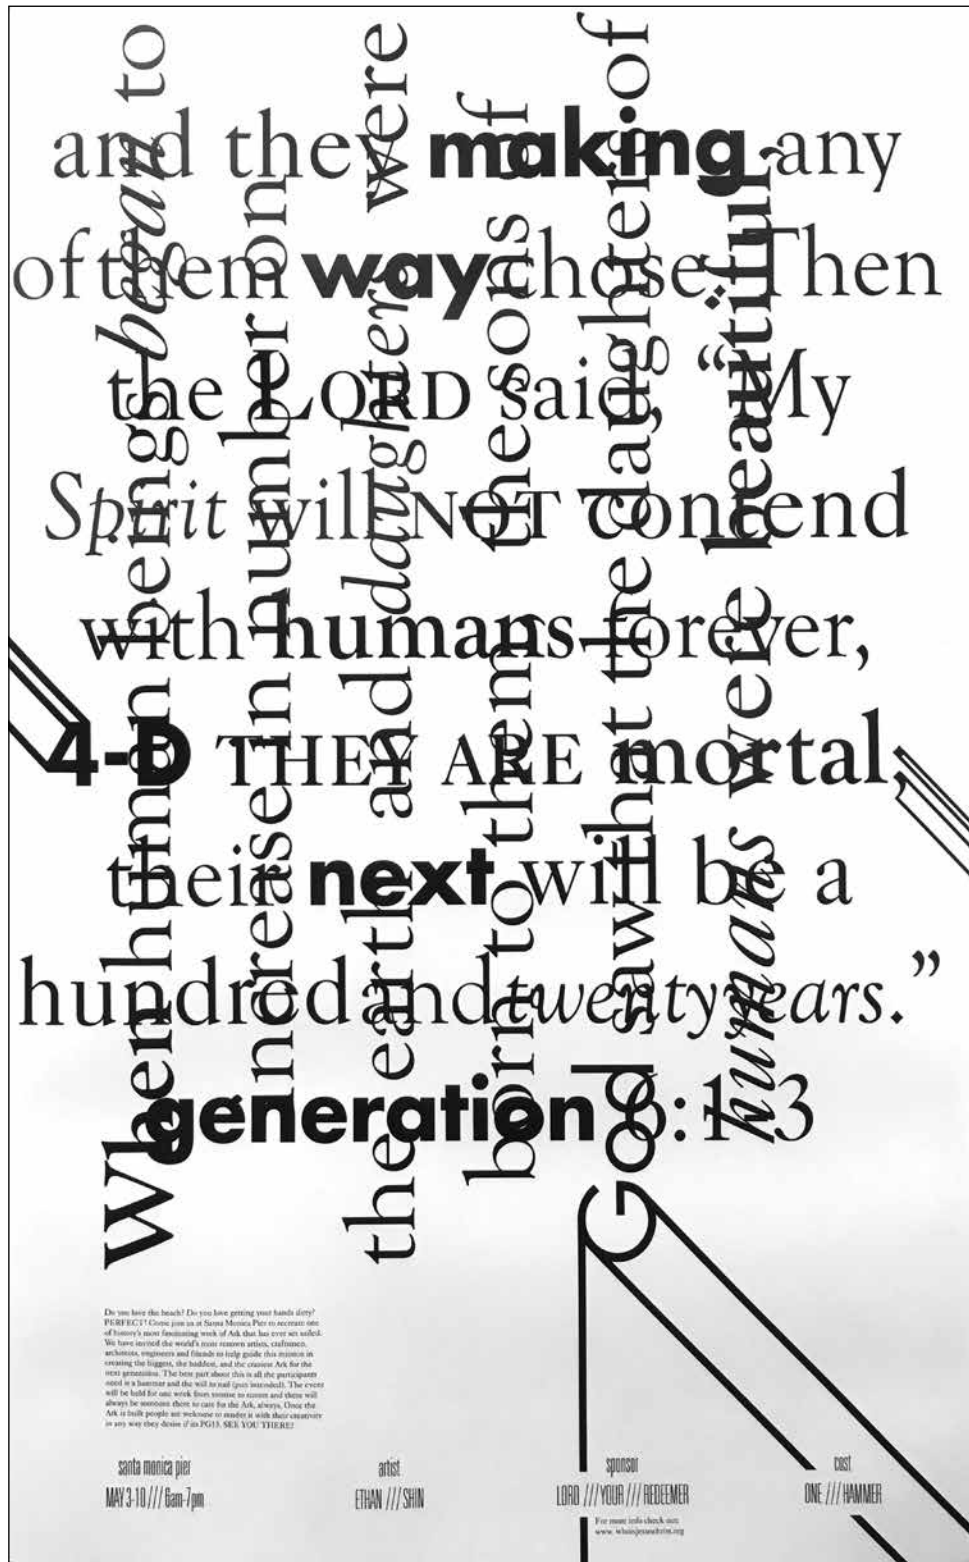 When human beings began to
increase in number on
the earth and daughters were
born to them the sons of
God saw that the daughters of
humans were beautiful,
and they making any
of them way chose. Then
the LORD said, “My
Spirit will NOT contend
with humans forever,
4-D THEY ARE mortal,
their next will be a
hundred and twenty years.”
generation 6:1-3
Do you love the beach? Do you love getting your hands dirty?
PERFECT! Come join us at Santa Monica Pier to recreate one
of history's most fascinating work of Ark that has ever set sailed.
We have invited the world's most renown artists, craftsmen,
architects, engineers and friends to help guide this mission in
creating the biggest, the baddest, and the craziest Ark for the
next generation. The best part about this is all the participants
need is a hammer and the will to nail (pun intended). The event
will be held for one week from sunrise to sunset and there will
always be someone there to care for the Ark, always. Once the
Ark is built people are welcome to render it with their creativity
in any way they desire if its PG13. SEE YOU THERE!
santa monica pier
MAY 3-10 /// 6am-7pm
artist
ETHAN /// SHIN
sponsor
LORD /// YOUR /// REDEEMER
For more info check out:
cost
ONE /// HAMMER